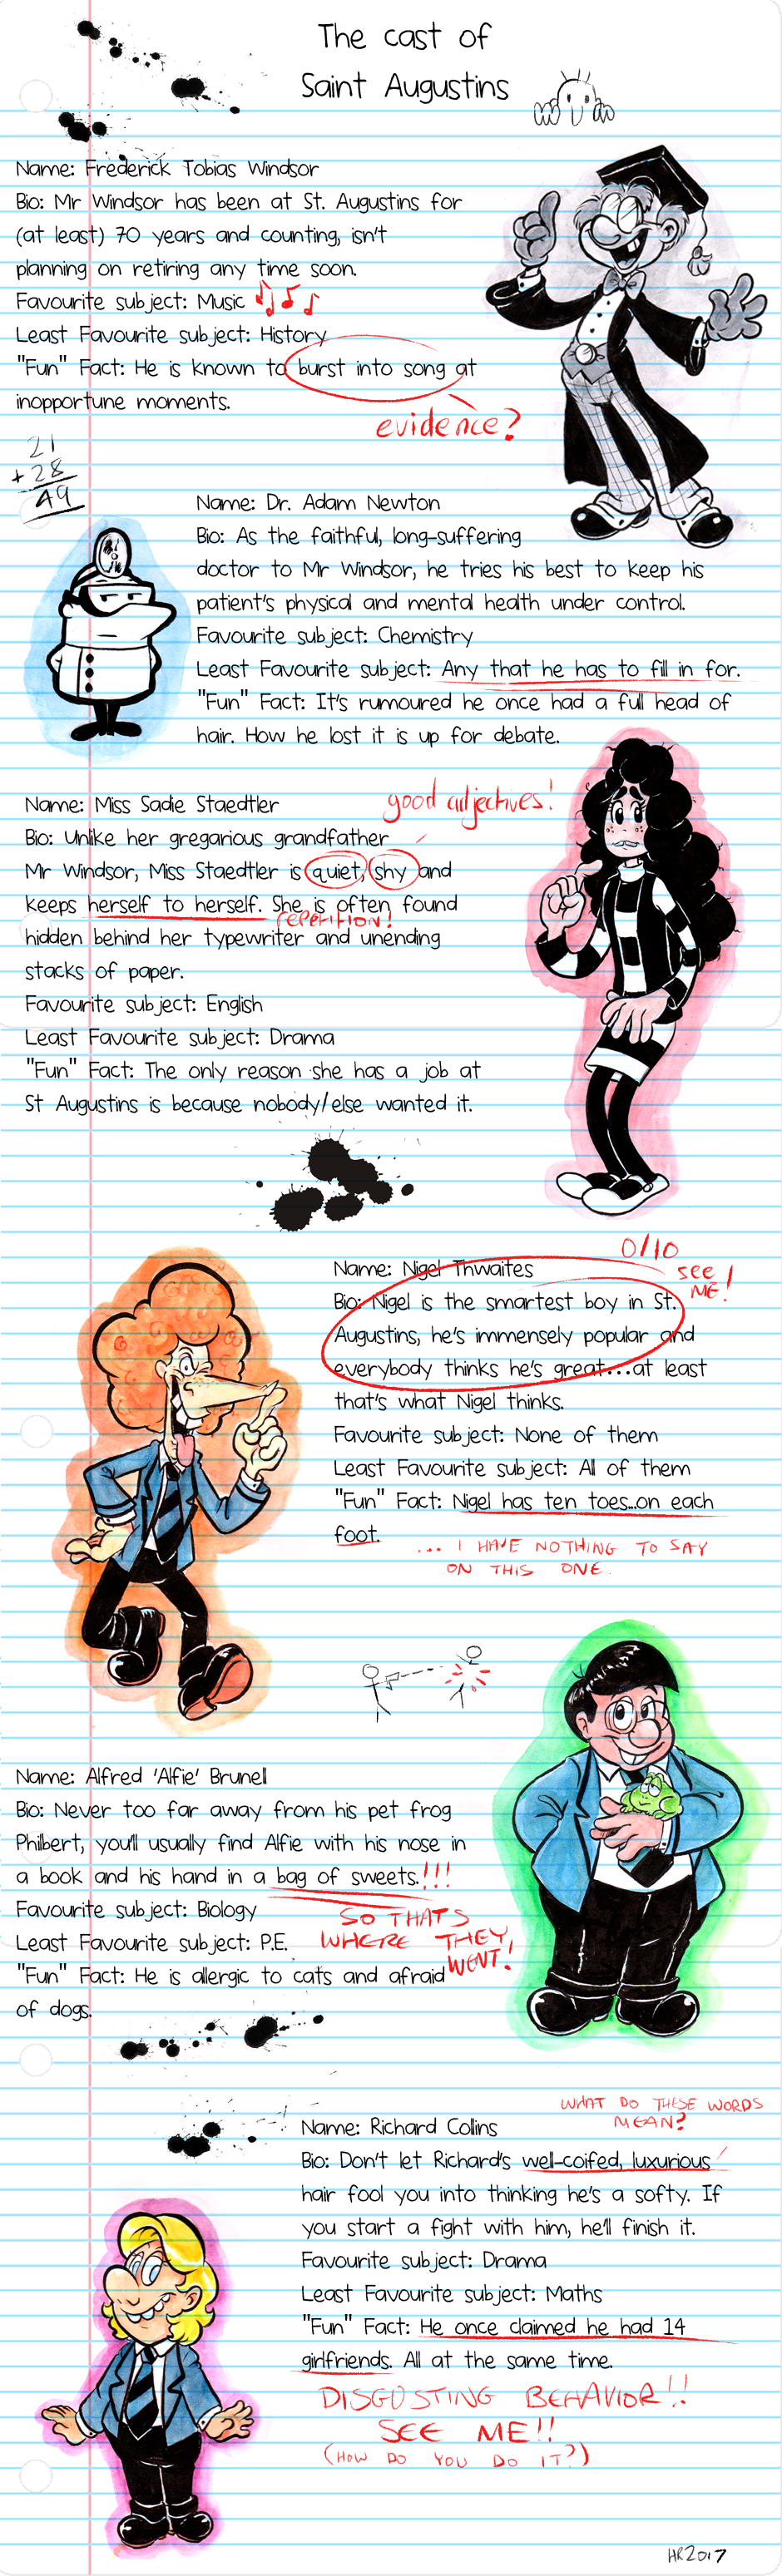 The cast of
Saint Augustins
Name: Frederick Tobias Windsor
Bio: Mr Windsor has been at St. Augustins for
(at least) 70 years and counting, isn't
planning on retiring any time soon.
Favourite subject: Music
Least Favourite subject: History
"Fun" Fact: He is known to burst into song at
inopportune moments.
evidence?
21
+28
49
Name: Dr. Adam Newton
Bio: As the faithful, long-suffering
doctor to Mr Windsor, he tries his best to keep his
patient's physical and mental health under control.
Favourite subject: Chemistry
Least Favourite subject: Any that he has to fill in for.
"Fun" Fact: It's rumoured he once had a full head of
hair. How he lost it is up for debate.
good adjectives!
Name: Miss Sadie Staedtler
Bio: Unlike her gregarious grandfather
Mr Windsor, Miss Staedtler is quiet, shy and
keeps herself to herself. She is often found
repetition!
hidden behind her typewriter and unending
stacks of paper.
Favourite subject: English
Least Favourite subject: Drama
"Fun" Fact: The only reason she has a job at
St Augustins is because nobody else wanted it.
0/10
SEE ME!
Name: Nigel Thwaites
Bio: Nigel is the smartest boy in St.
Augustins, he's immensely popular and
everybody thinks he's great...at least
that's what Nigel thinks.
Favourite subject: None of them
Least Favourite subject: All of them
"Fun" Fact: Nigel has ten toes...on each
foot.
... I HAVE NOTHING TO SAY
ON THIS ONE.
Name: Alfred 'Alfie' Brunell
Bio: Never too far away from his pet frog
Philbert, you'll usually find Alfie with his nose in
a book and his hand in a bag of sweets.!!!
Favourite subject: Biology
Least Favourite subject: P.E.
"Fun" Fact: He is allergic to cats and afraid
of dogs.
SO THATS
WHERE THEY
WENT!
WHAT DO THESE WORDS
MEAN?
Name: Richard Collins
Bio: Don't let Richard's well-coifed, luxurious
hair fool you into thinking he's a softy. If
you start a fight with him, he'll finish it.
Favourite subject: Drama
Least Favourite subject: Maths
"Fun" Fact: He once claimed he had 14
girlfriends. All at the same time.
DISGUSTING BEHAVIOR!!
SEE ME!!
(HOW DO YOU DO IT?)
HR2017